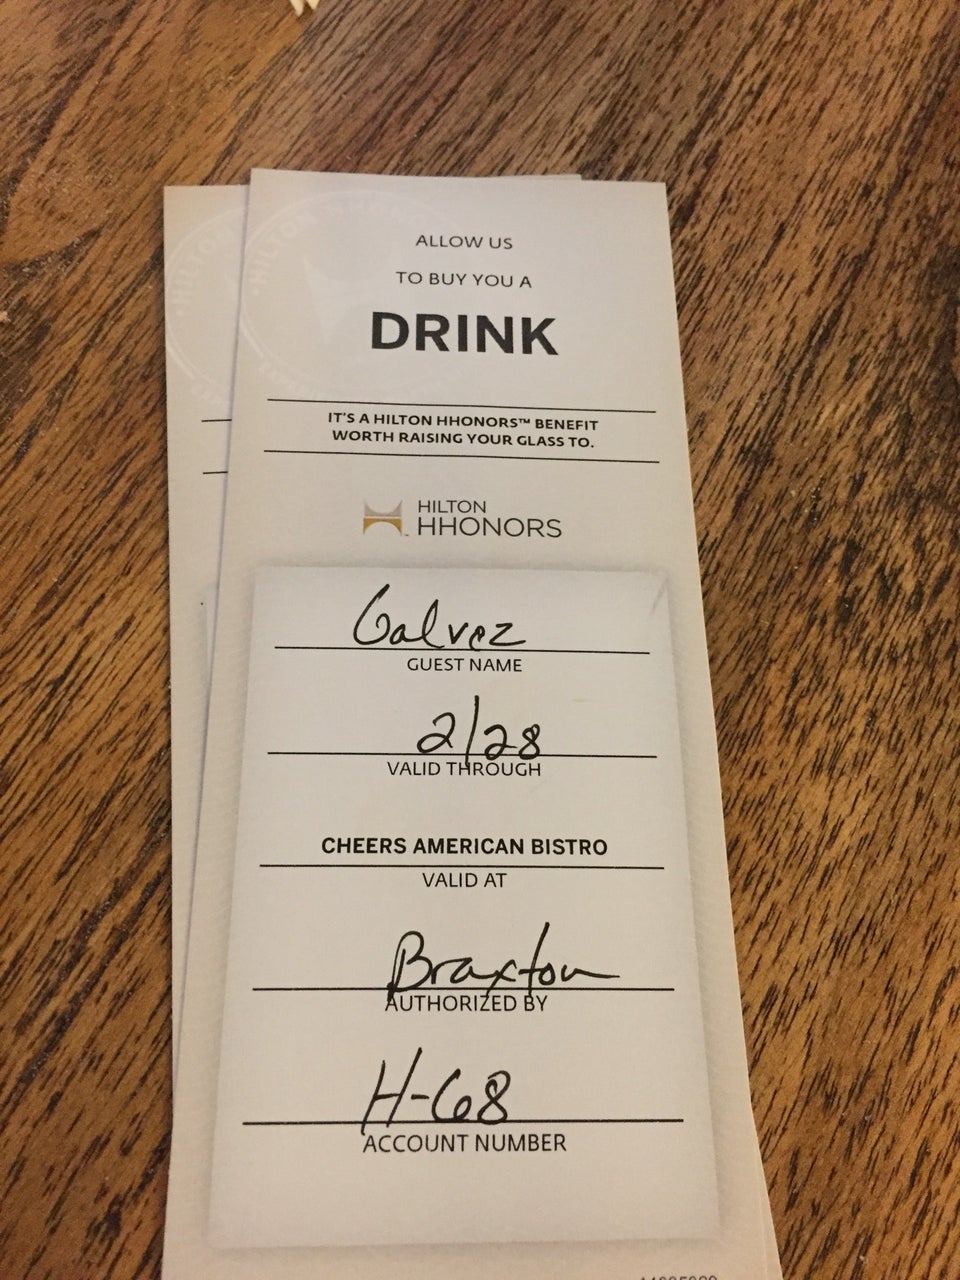 ALLOW US
TO BUY YOU A
DRINK
IT'S A HILTON HHONORS™ BENEFIT
WORTH RAISING YOUR GLASS TO.
HILTON
HHONORS
Galvez
GUEST NAME
2/28
VALID THROUGH
CHEERS AMERICAN BISTRO
VALID AT
Braxton
AUTHORIZED BY
H-68
ACCOUNT NUMBER